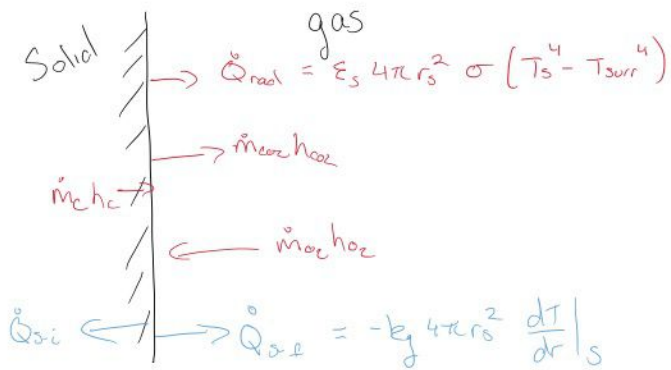 gas
Solid
Q̇rad = εs 4π rs² σ (Ts⁴ - Tsurr⁴)
ṁco2 hco2
ṁc hc
ṁo2 ho2
Q̇s-i
Q̇s-f = -kg 4π rs² dT/dr |s